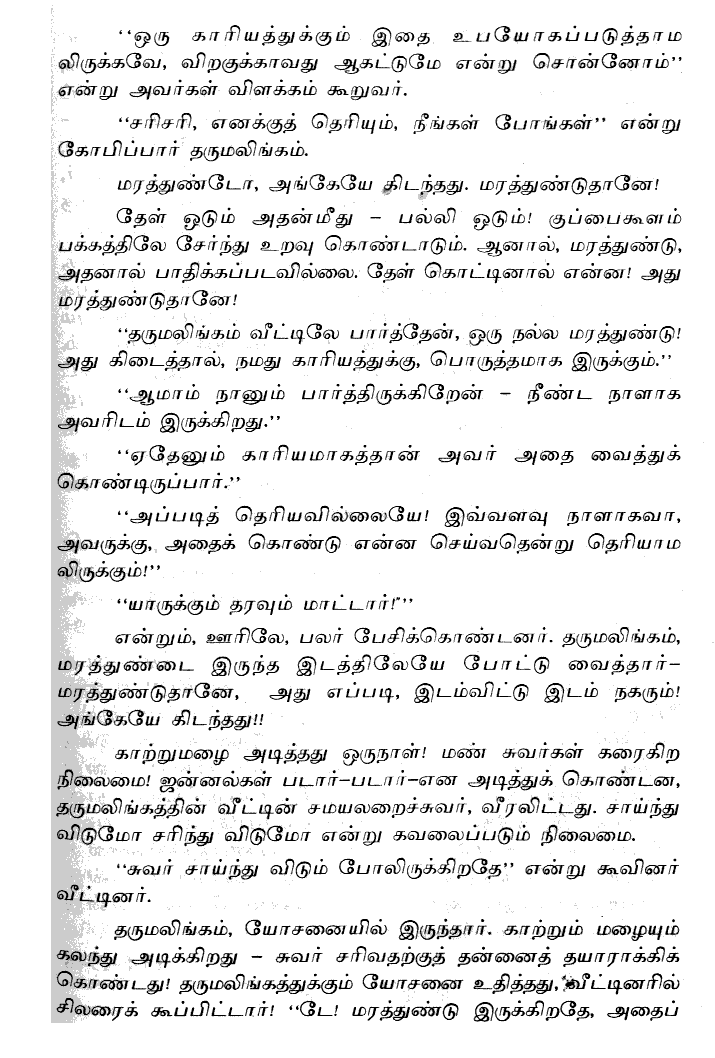 ‘‘ஒரு காரியத்துக்கும் இதை உபயோகப்படுத்தாம
லிருக்கவே, விறகுக்காவது ஆகட்டுமே என்று சொன்னோம்’’
என்று அவர்கள் விளக்கம் கூறுவர்.
‘‘சரிசரி, எனக்குத் தெரியும், நீங்கள் போங்கள்’’ என்று
கோபிப்பார் தருமலிங்கம்.
மரத்துண்டோ, அங்கேயே கிடந்தது. மரத்துண்டுதானே!
தேள் ஓடும் அதன்மீது – பல்லி ஓடும்! குப்பைகூளம்
பக்கத்திலே சேர்ந்து உறவு கொண்டாடும். ஆனால், மரத்துண்டு,
அதனால் பாதிக்கப்படவில்லை. தேள் கொட்டினால் என்ன! அது
மரத்துண்டுதானே!
‘‘தருமலிங்கம் வீட்டிலே பார்த்தேன், ஒரு நல்ல மரத்துண்டு!
அது கிடைத்தால், நமது காரியத்துக்கு, பொருத்தமாக இருக்கும்.’’
‘‘ஆமாம் நானும் பார்த்திருக்கிறேன் – நீண்ட நாளாக
அவரிடம் இருக்கிறது.’’
‘‘ஏதேனும் காரியமாகத்தான் அவர் அதை வைத்துக்
கொண்டிருப்பார்.’’
‘‘அப்படித் தெரியவில்லையே! இவ்வளவு நாளாகவா,
அவருக்கு, அதைக் கொண்டு என்ன செய்வதென்று தெரியாம
லிருக்கும்!’’
‘‘யாருக்கும் தரவும் மாட்டார்!’’
என்றும், ஊரிலே, பலர் பேசிக்கொண்டனர். தருமலிங்கம்,
மரத்துண்டை இருந்த இடத்திலேயே போட்டு வைத்தார்–
மரத்துண்டுதானே, அது எப்படி, இடம்விட்டு இடம் நகரும்!
அங்கேயே கிடந்தது!!
காற்றுமழை அடித்தது ஒருநாள்! மண் சுவர்கள் கரைகிற
நிலைமை! ஜன்னல்கள் படார்–படார்–என அடித்துக் கொண்டன,
தருமலிங்கத்தின் வீட்டின் சமயலறைச்சுவர், வீரலிட்டது. சாய்ந்து
விடுமோ சரிந்து விடுமோ என்று கவலைப்படும் நிலைமை.
‘‘சுவர் சாய்ந்து விடும் போலிருக்கிறதே’’ என்று கூவினர்
வீட்டினர்.
தருமலிங்கம், யோசனையில் இருந்தார். காற்றும் மழையும்
கலந்து அடிக்கிறது – சுவர் சரிவதற்குத் தன்னைத் தயாராக்கிக்
கொண்டது! தருமலிங்கத்துக்கும் யோசனை உதித்தது, வீட்டினரில்
சிலரைக் கூப்பிட்டார்! ‘‘டே! மரத்துண்டு இருக்கிறதே, அதைப்